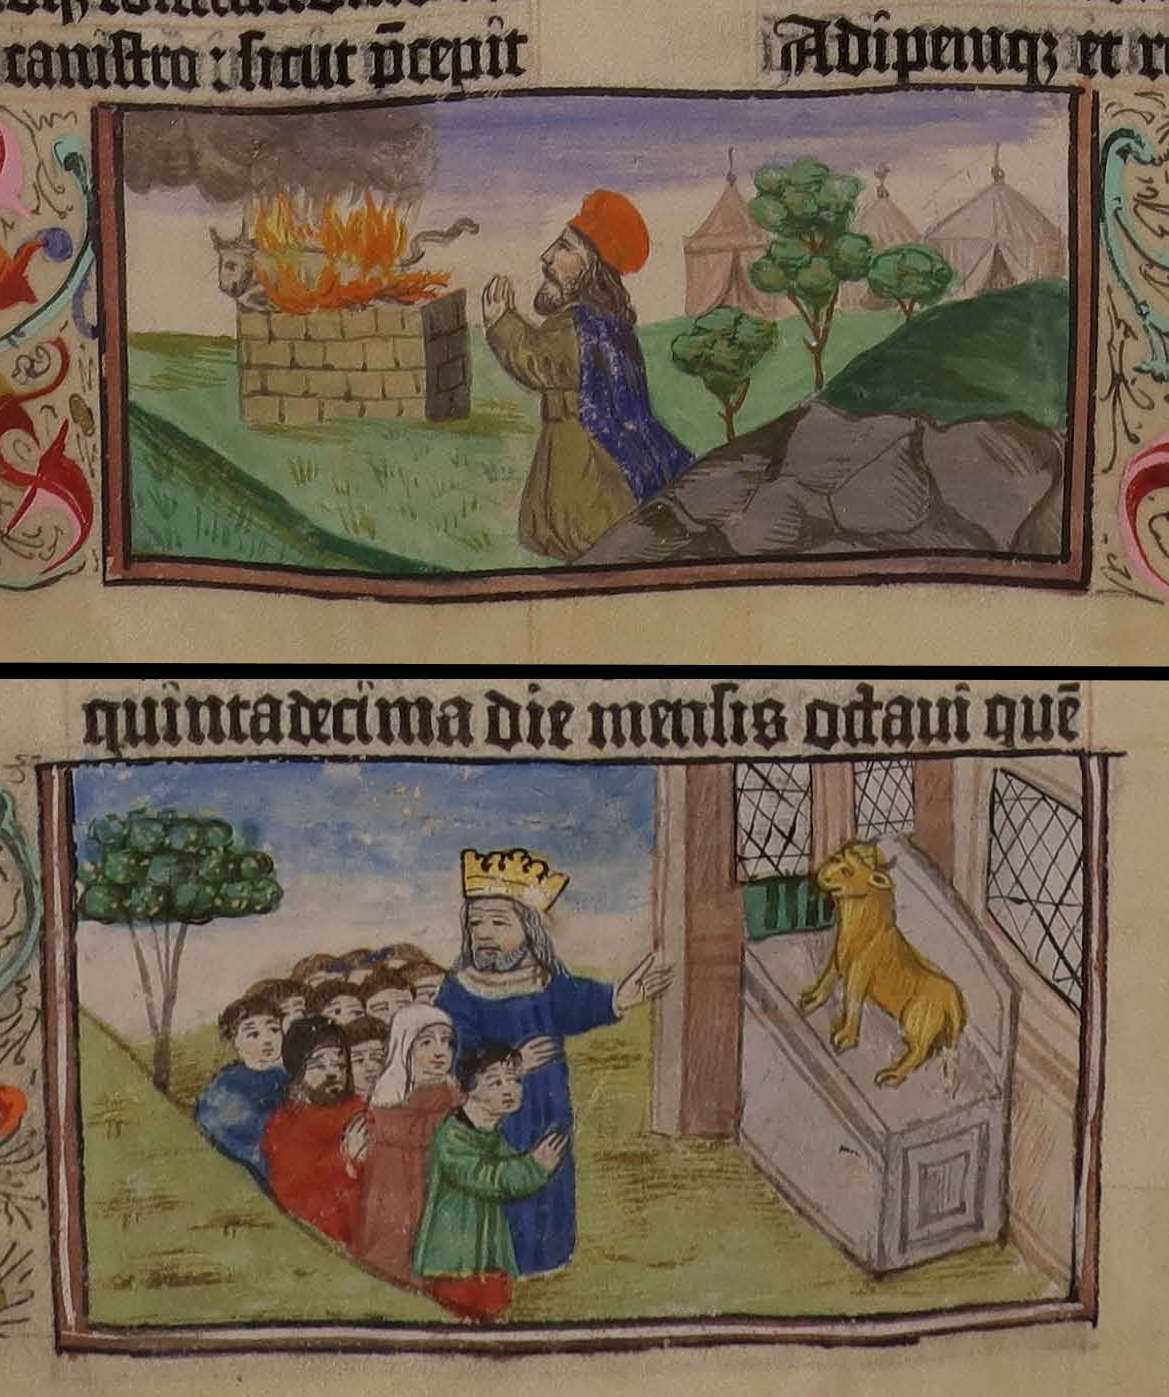 canistro : sicut p̄cepit
Adipemq; et r
quintadecima die mensis octavi quē